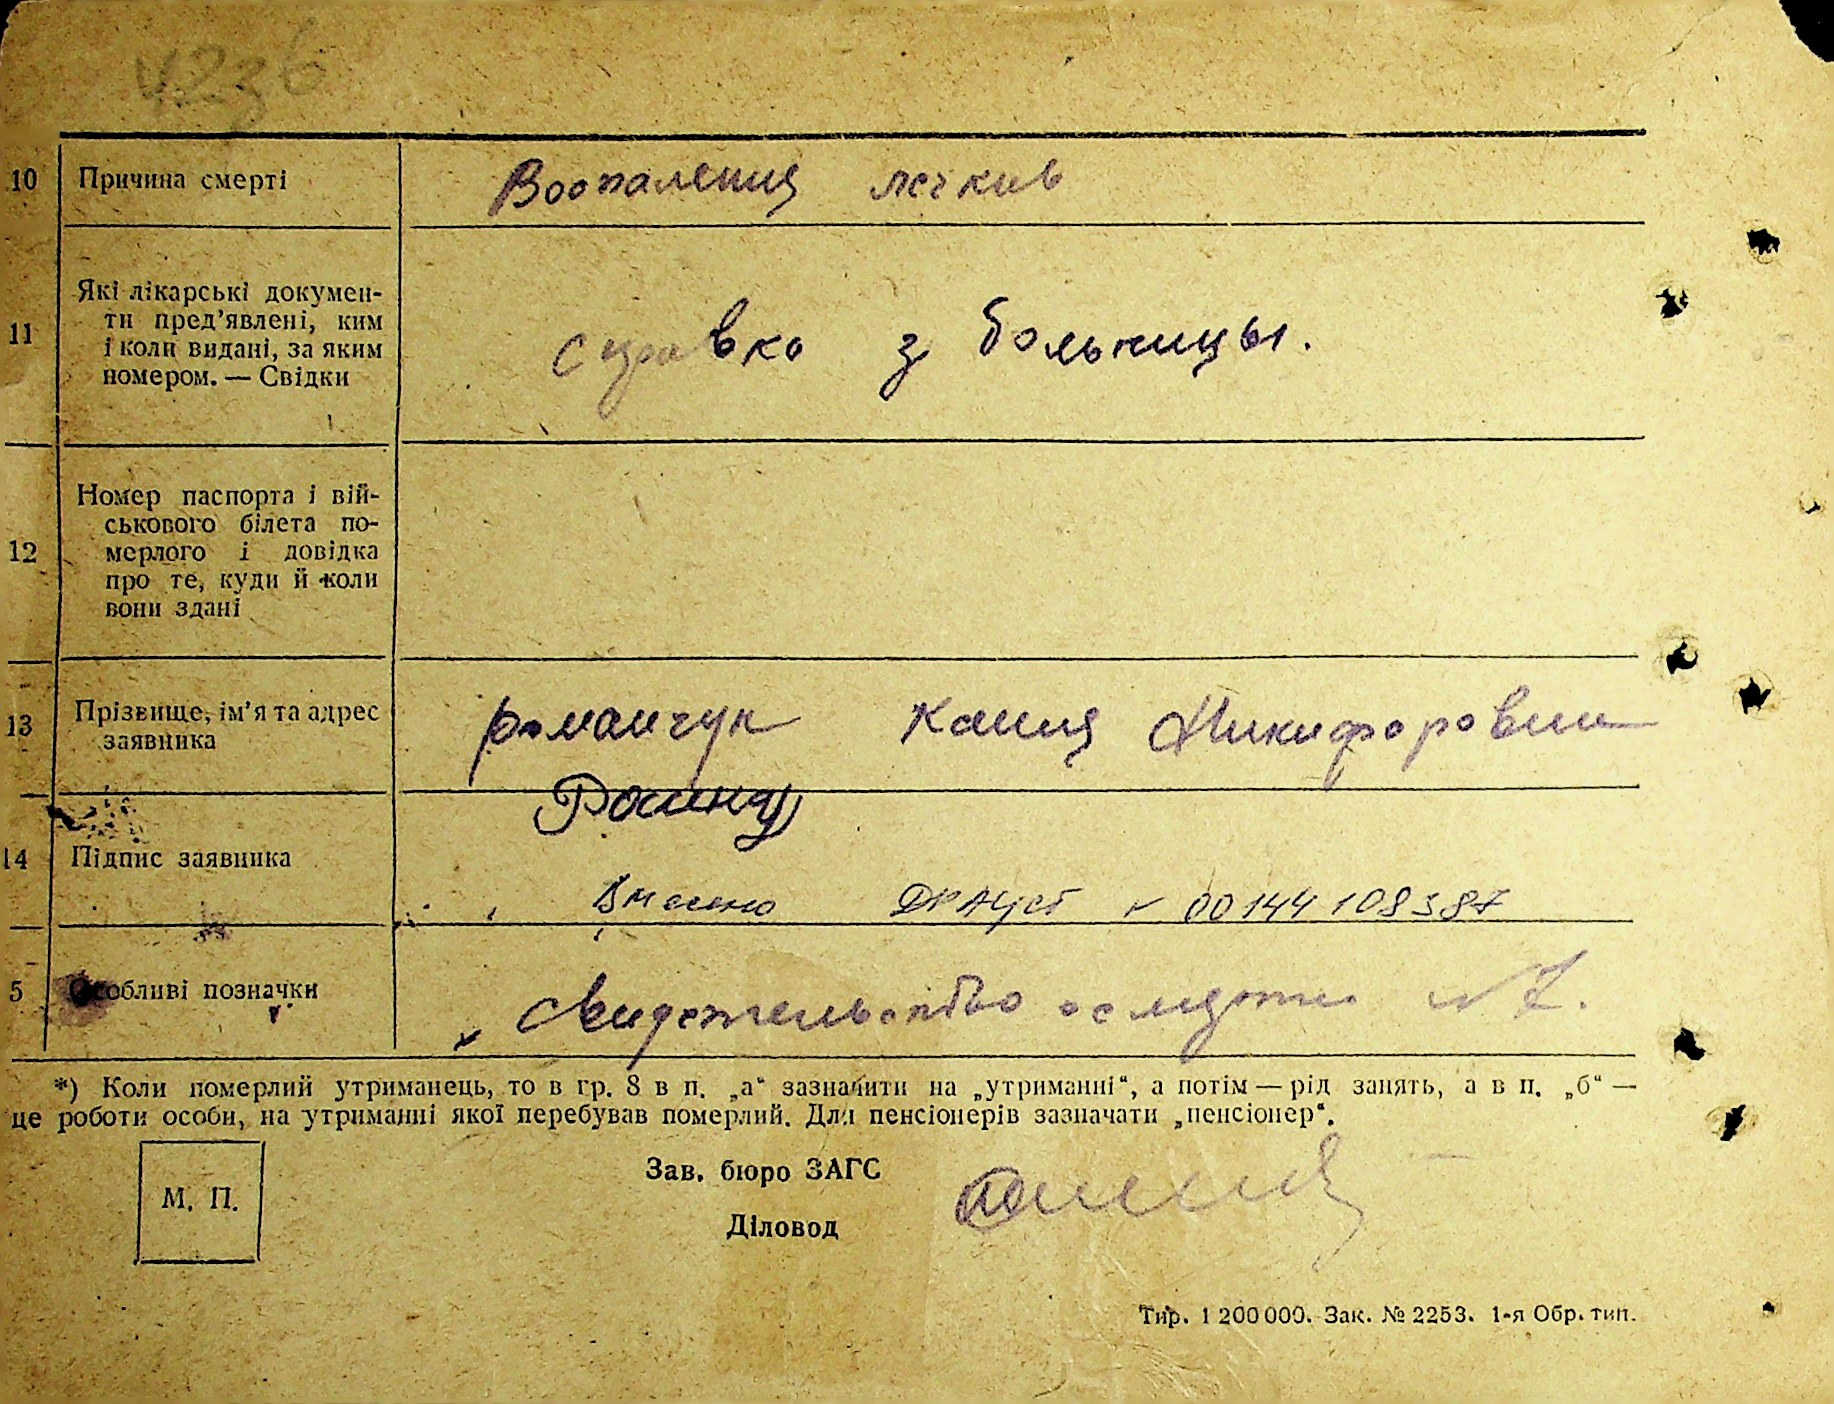 4236
10 Причина смерті Воопаления легкив
11 Які лікарські докумен-
ти пред'явлені, ким
і коли видані, за яким
номером. — Свідки
справка з больницы.
12 Номер паспорта і вій-
ськового білета по-
мерлого і довідка
про те, куди й коли
вони здані
13 Прізвище, ім'я та адрес
заявника
романчук Кания Никифоровни
14 Підпис заявника
Внесено ДРАЦСГ № 00144108387
5 Особливі позначки
Свидетельство о смерти № 7.
*) Коли померлий утриманець, то в гр. 8 в п. „а“ зазначити на „утриманні“, а потім — рід занять, а в п. „б“ —
це роботи особи, на утриманні якої перебував померлий. Для пенсіонерів зазначати „пенсіонер“.
М. П.
Зав. бюро ЗАГС
Діловод
Тир. 1 200 000. Зак. № 2253. 1-я Обр. тип.